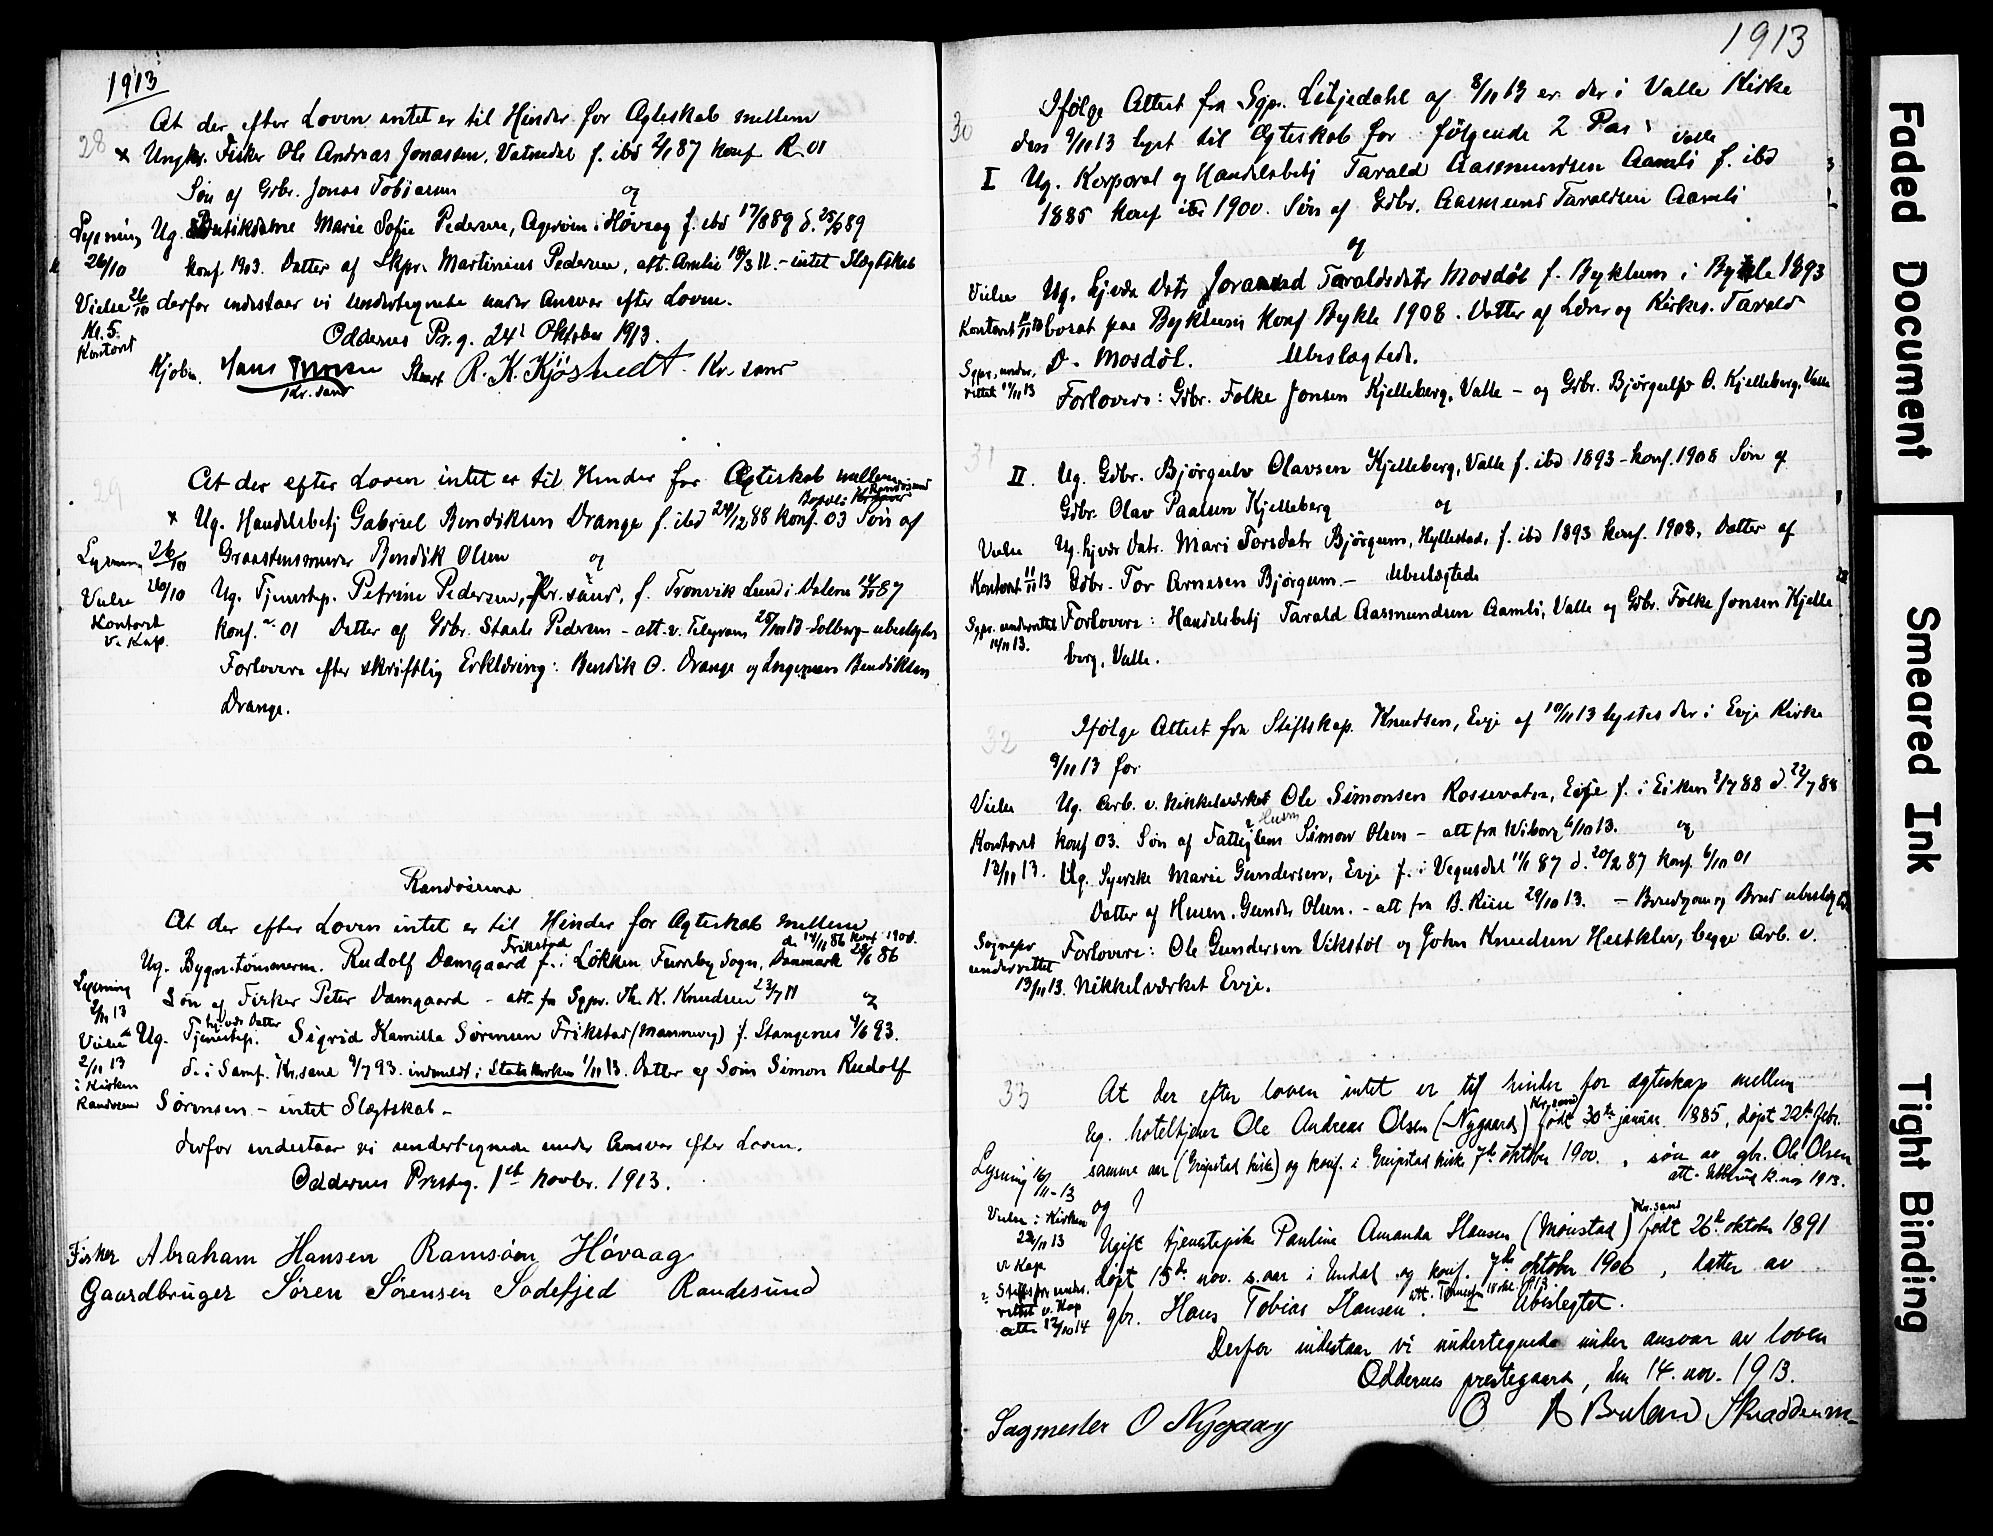 1913
28
At der efter Loven intet er til Hinder for Ægteskab mellem
x Ungkr. Fisker Ole Andreas Jonassen, Vatnedal f. ibd 2/1 87 konf R 01
Søn af Gdbr. Jonas Tobiasen og
Lysning Ug. Butikdame Marie Sofie Pedersen, Agerøen i Høvaag f. ibd 17/8 89 d. 25/8 89
26/10 konf. 1903. Datter af Skpr. Martinius Pedersen, att. Amlie 18/3 11. - intet Slægtskab
Vielse 26/10 derfor indestaar vi Undertegnede under Ansvar efter Loven.
Kl. 5.
Kontoret
Oddernes Pr.g. 24' Oktober 1913.
Kjøbm. Hans R. K. Kjøstvedt. Kr. sand
Kr. sand
29
At der efter Loven intet er til Hinder for Ægteskab mellem
Randøsund
x Ug. Handelsbetj Gabriel Bendiksen Drange f. ibd 24/12 88 konf. 03 Søn af
Lysning 26/10 Graastensmurer Bendik Olsen og
Vielse 26/10 Ug. Tjenestep. Petrine Pedersen, Kr. sand, f. Tronvik Lund i Dalene 14/5 87
Kontoret
v. Kap.
konf. 01 Datter af Gdbr. Staale Pedersen - att. v. Telegram 25/10 13 Solberg - ubeslægtet
Forlovere efter skriftlig Erklæring: Bendik O. Drange og Ingeman Bendiksen
Drange.
Randøsund
At der efter Loven intet er til Hinder for Ægteskab mellem
Frikstad d. 14/11 86 konf 1901.
Ug. Bygn.tømmerm. Rudolf Damgaard f. i Løkken Furreby Sogn, Danmark 28/6 86
Lysning
2/11 13
Søn af Fisker Peter Damgaard - att. fra Sgpr. Th. K. Knudsen 23/7 11 og
hjvær. Datter
Vielse Ug. Tjenestep. Sigrid Kamilla Sørensen Frikstad (Mannevig) f. Stangenes 4/6 93.
2/11 13
i Kirken
Randøsund
d. i Samf. Kr.sand 9/7 93. indmeldt i Statskirken 1/11 13. Datter af Søm Simon Rudolf
Sørensen - intet Slægtskab -
derfor indestaar vi undertegnede under Ansvar efter Loven.
Oddernes Prestg. 1ste Novbr. 1913.
Fisker Abraham Hansen Ramsøen Høvaag
Gaardbruger Søren Sørensen Sodefjed Randesund
1913
30
Ifølge Attest fra Sgpr. Liljedahl af 8/11 13 er der i Valle Kirke
den 9/11 13 lyst til Ægteskab for følgende 2 Par:
Valle
I Ug. Korporal og Handelsbetj Tarald Aasmundsen Aamli f. ibd
1885 konf ibd 1900. Søn af Gdbr. Aasmund Taraldsen Aamli
og
Vielse Ug. hjvær Datr Joraand Taraldsdatr Mosdøl f. Byklum i Bykle 1893
Kontoret 11/11 13 bosat paa Byklum Konf Bykle 1908. Datter af Lærer og Kirkes. Tarald
Sgpr. under-
rettet 11/11 13
D. Mosdøl. Ubeslægtede.
Forlovere: Gdbr. Folke Jonsen Kjelleberg, Valle - og Gdbr. Bjørgulv O. Kjelleberg, Valle
31
II. Ug. Gdbr. Bjørgulv Olavsen Kjelleberg, Valle f. ibd 1893 - konf. 1908 Søn af
Gdbr. Olav Paalsen Kjelleberg og
Vielse Ug. hjvær Datr. Mari Torsdatr Bjørgum, Hyllestad, f. ibd 1893 konf. 1908, Datter af
Kontoret 11/11 13 Gdbr. Tor Arnesen Bjørgum. - Ubeslægtede
Sgpr. underrettet
14/11 13.
Forlovere: Handelsbetj Tarald Aasmundsen Aamli, Valle og Gdbr. Folke Jonsen Kjelle
berg, Valle.
32
Ifølge Attest fra Stiftskap. Knudsen, Evje af 10/11 13 lystes der i Evje Kirke
9/11 13 for
Vielse Ug. Arb. v. Nikkelværket Ole Simonsen Rossevatn, Evje f. i Eiken 3/7 88 d. 22/7 88
Husm
Kontoret konf 03. Søn af Fattiglem Simon Olsen - att fra Wiborg 6/10 13. og
13/11 13. Ug. Syerske Marie Gundersen, Evje f. i Vegusdal 11/1 87 d. 20/2 87 konf. 6/10 01
Datter af Husm. Gunder Olsen. - att fra B. Riise 29/10 13. - Brudgom og Brud ubeslægtede
Sognepr
underrettet
13/11 13.
Forlovere: Ole Gundersen Vikstøl og John Knudsen Hestkler, begge Arb. v.
Nikkelværket Evje.
33
At der efter loven intet er til hinder for ægteskap mellem
Kr.sand
Ug. hoteltjener Ole Andreas Olsen (Nygaard) født 30te januar 1885, døpt 22de febr.
Lysning 16/11-13
samme aar (Greipstad kirke) og konf. i Greipstad kirke 7de oktober 1900., søn av gbr. Ole Olsen
att. 12. nov 1913.
og
Vielse i Kirken
22/11 13
v. Kap.
Kr.sand
Ugift tjenestepike Pauline Amanda Hansen (Mønstad) født 26de oktober 1891
døpt 15de nov. s. aar i Undal og konf. 7de oktober 1906, datter av
Stiftspr under-
rettet v. Kap
gbr. Hans Tobias Hansen. Ubeslegtet.
Derfor indestaar vi undertegnede under ansvar av loven
Oddernes prestegaard, den 14. nov. 1913.
Sagmester O Nygaard
O B Bruland Skraddderm
Faded Document
Smeared Ink
Tight Binding